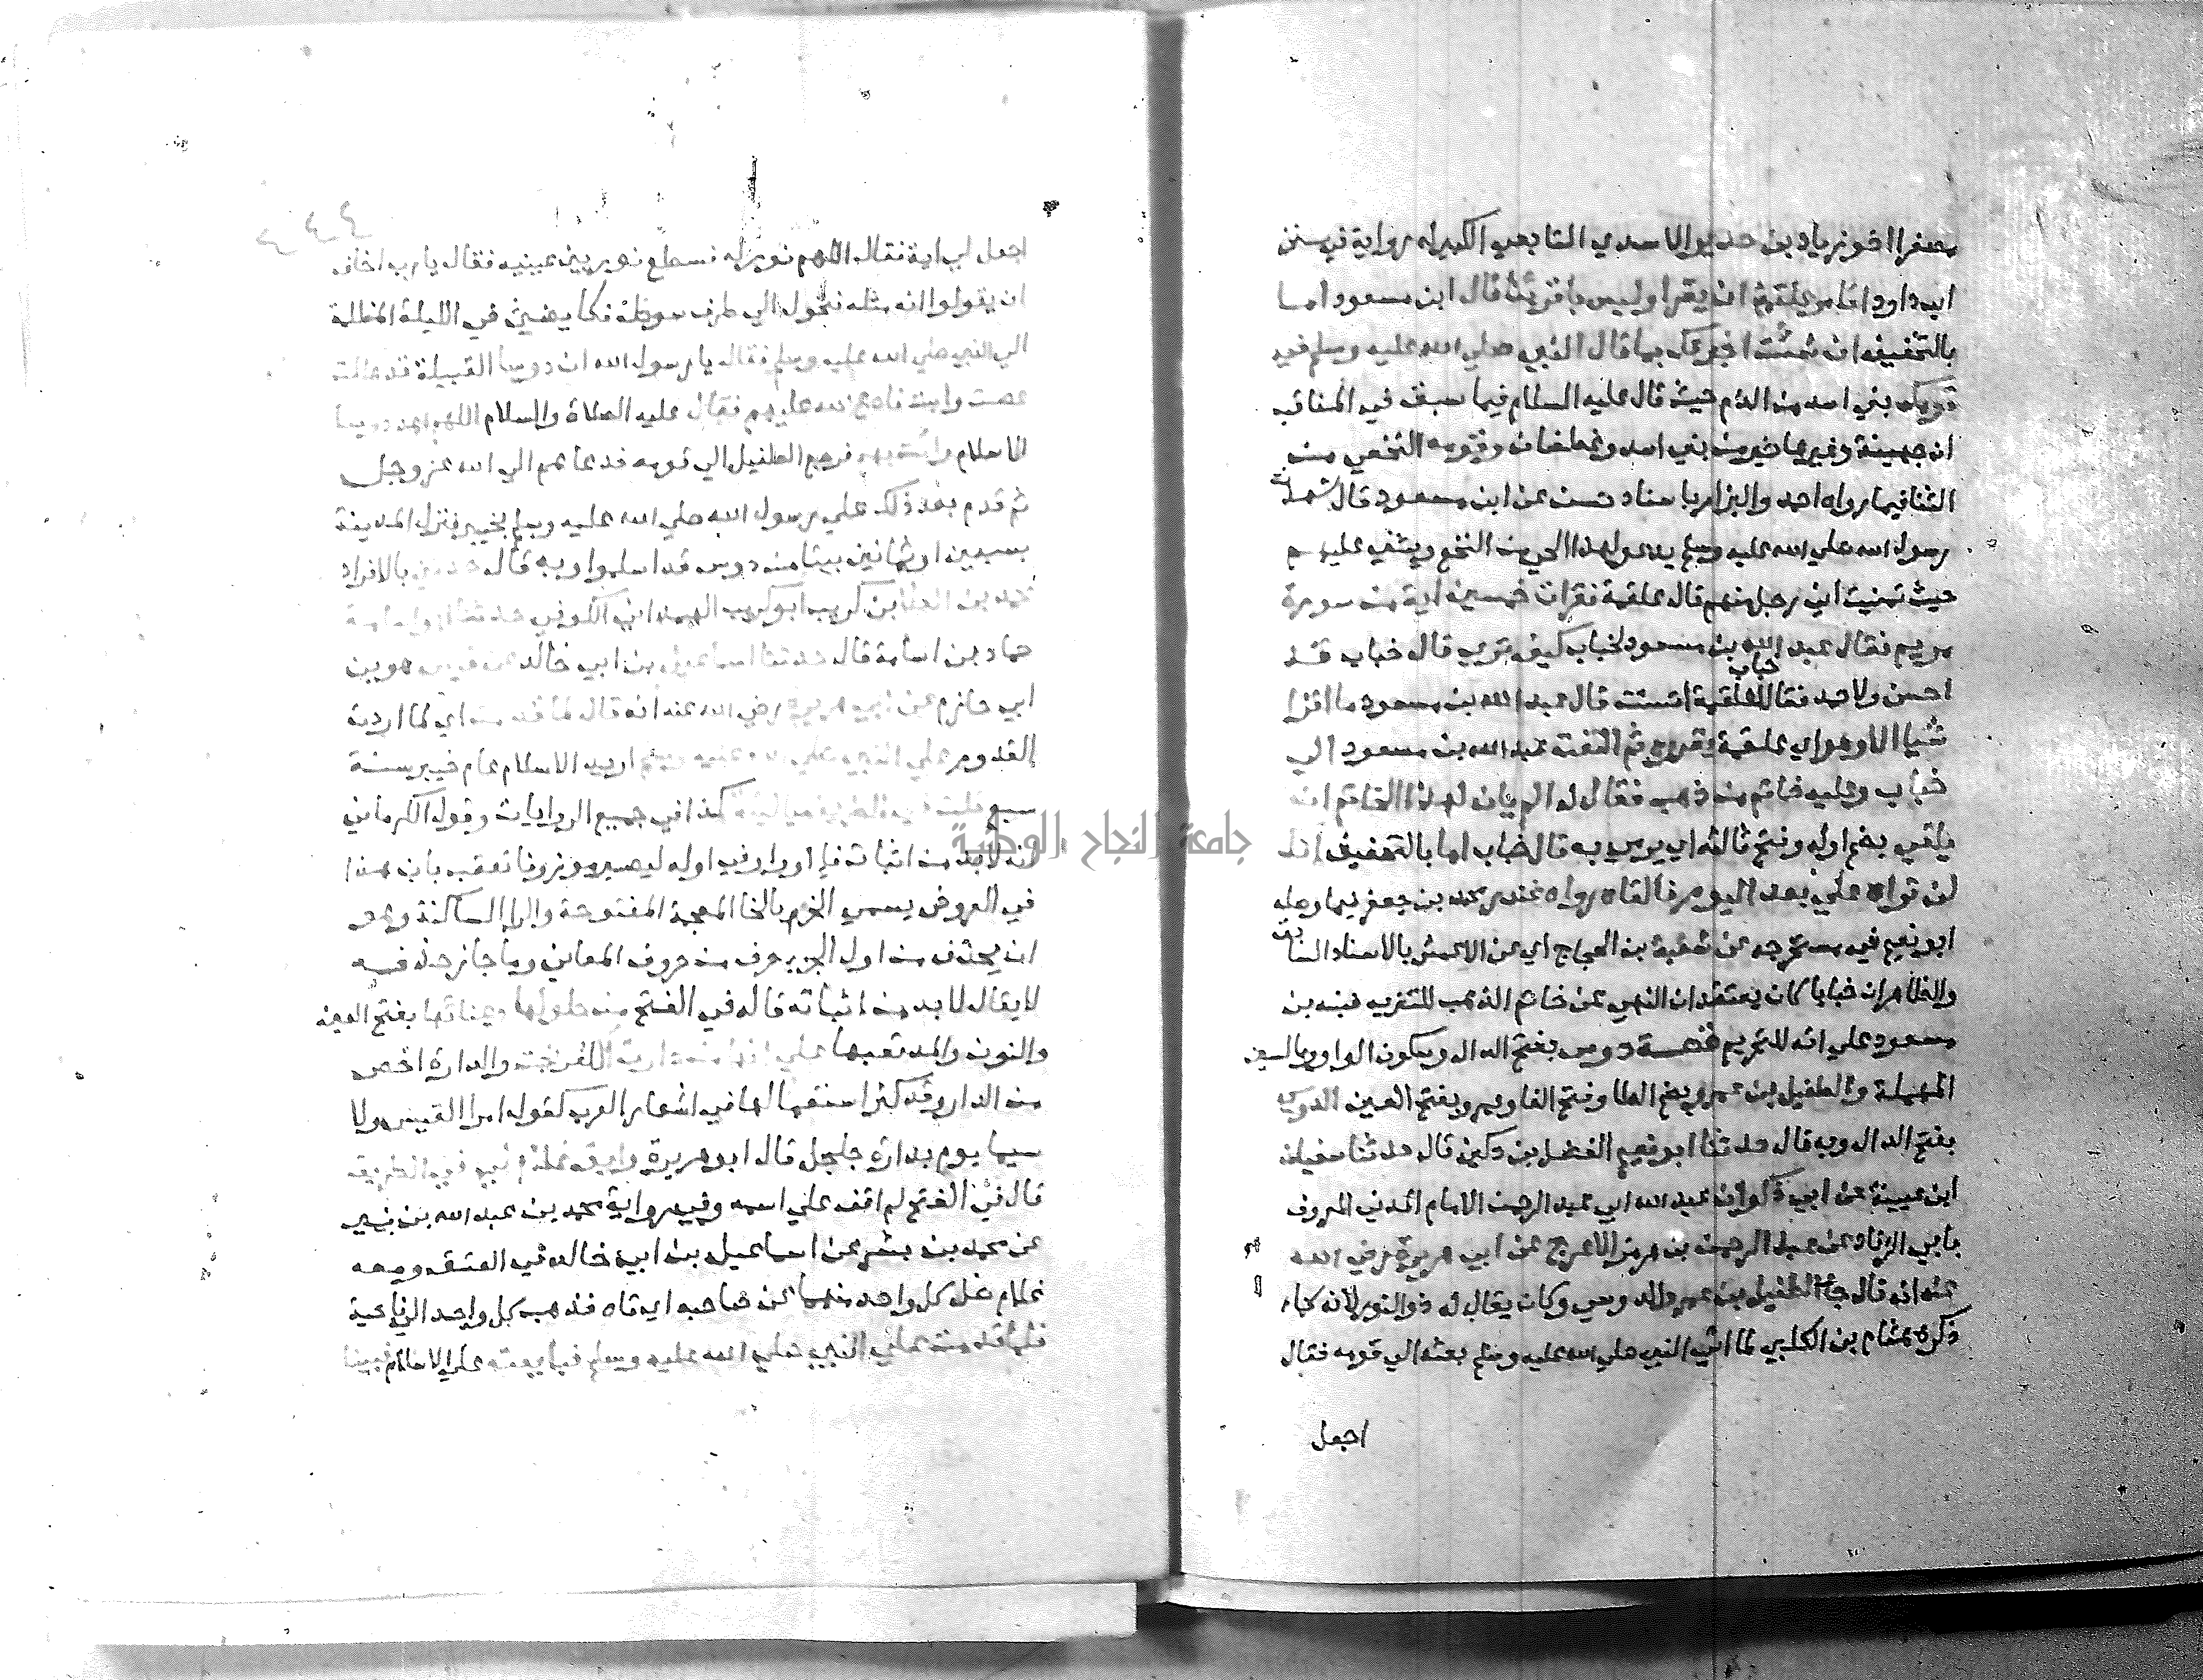 مصغرا اخو زياد بن حدير الاسدي التابعي الكبير له رواية في سنن
ابي داود اتامر علقمة ان يقرا وليس باقرئنا قال ابن مسعود اما
بالتخفيف ان شئت اخبرتك بما قال النبي صلي الله عليه وسلم في
قومك بني اسد من الذم حيث قال عليه السلام فيما سبق في المناقب
ان جهينة وغيرها خير من بني اسد وغطفان وقومه النخعي من
الثنا فيما رواه احمد والبزار باسناد حسن عن ابن مسعود قال شهدت
رسول الله صلي الله عليه وسلم يدعو لهذا الحي من النخع ويثني عليهم
حيث تمنيت اني رجل منهم قال علقمة فقرات خمسين اية من سورة
مريم فقال عبد الله بن مسعود لخباب كيف تري قال خباب قد
احسن ولاحمد فقال خباب لعلقمة احسنت قال عبد الله بن مسعود ما اقرا
شيا الا وهو اي علقمة يقروه ثم التفت عبد الله بن مسعود الي
خباب وعليه خاتم من ذهب فقال له الم يان لهذا الخاتم ان
يلقي بضم اوله وفتح ثالثه اي يرمي به قال خباب اما بالتخفيف انك
لن تراه علي بعد اليوم فالقاه رواه غندر محمد بن جعفر فيما وصله
ابو نعيم في مستخرجه عن شعبة بن الحجاج اي عن الاعمش بالاسناد السابق
والظاهر ان خبابا كان يعتقد ان النهي عن خاتم الذهب للتنزيه فنبه بن
مسعود علي انه للتحريم قصة دوس بفتح الدال وسكون الواو وبالسين
المهملة والطفيل بن عمرو بضم الطا وفتح الفا وعمرو بفتح العين الدوسي
بفتح الدال وبه قال حدثنا ابو نعيم الفضل بن دكين قال حدثنا سفيان
ابن عيينة عن ابي ذكوان عبد الله ابي عبد الرحمن الامام المدني المعروف
بابي الزناد عن عبد الرحمن بن هرمز الاعرج عن ابي هريرة رضي الله
عنه انه قال جا الطفيل بن عمرو الدوسي وكان يقال له ذو النور لانه كما
ذكره هشام بن الكلبي لما اتي النبي صلي الله عليه وسلم بعثه الي قومه فقال
اجعل
اجعل لي اية فقال اللهم نور له فسطع نور بين عينيه فقال يا رب اخاف
ان يقولوا انه مثله فتحول الي طرف سوطه فكا يضي في الليلة المظلمة
الي النبي صلي الله عليه وسلم فقال يا رسول الله ان دوسا القبيلة قد هلكت
عصت وابت فادع الله عليهم فقال عليه الصلاة والسلام اللهم اهد دوسا
للاسلام وائت بهم فرجع الطفيل الي قومه فدعاهم الي الله عز وجل
ثم قدم بعد ذلك علي رسول الله صلي الله عليه وسلم بخيبر فنزل المدينة
بسبعين او ثمانين بيتا من دوس قد اسلموا وبه قال حدثني بالافراد
محمد بن العلا بن كريب ابو كريب الهمداني الكوفي حدثنا ابو اسامة
حماد بن اسامة قال حدثنا اسماعيل بن ابي خالد عن قيس هو بن
ابي حازم عن ابي هريرة رضي الله عنه انه قال لما قدمت اي لما اردت
القدوم علي النبي صلي الله عليه وسلم اريد الاسلام عام خيبر سنة
سبع قلت في الطريق يا ليلة كذا في جميع الروايات وقول الكرماني
انه لا بد من اثبات فا او واو في اوله ليصير موزونا تعقب بان هذا
في العروض يسمي الخرم بالخا المعجمة المفتوحة والرا الساكنة وهو
ان يحذف من اول الجزء حرف من حروف المعاني وما جاز حذفه
لا يقال لا بد من اثباته قاله في الفتح من طولها وعنائها بفتح العين
والنون والمد تعبها علي انها من دارة الكفر نجت والدارة اخص
من الدار وقد كثر استعمالها في اشعار العرب كقول امرا القيس ولا
سيما يوم بدارة جلجل قال ابو هريرة وابق غلام لي في الطريق
قال في الفتح لم اقف علي اسمه وفي رواية محمد بن عبد الله بن نمير
عن محمد بن بشر عن اسماعيل بن ابي خالد في العتق ومعه
غلام ضل كل واحد منهما عن صاحبه اي تاه فذهب كل واحد الي ناحية
فلما قدمت علي النبي صلي الله عليه وسلم فبايعته علي الاسلام فبينا
جامعة النجاح الوطنية